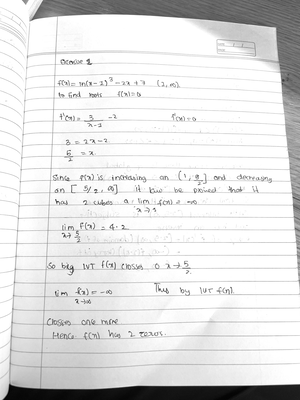 Exercise 1
f(x) = ln(x-2)³ - 2x + 7 (2, ∞)
to find roots f(x)=0
f'(x) = 3/(x-1) - 2 f(x)=0
3 = 2x - 2
5/2 = x
Since f(x) is increasing on (1, 5/2] and decreasing
on [5/2, ∞] it be proved that it
has 2 a. lim x→1 f(x) = -∞
lim x→5/2 f(x) = 4.2
So by IVT f(x) crosses 0 x→5/2
lim x→∞ f(x) = -∞ Thus by IVT f(x)
Crosses one more
Hence f(x) has 2 zeros.